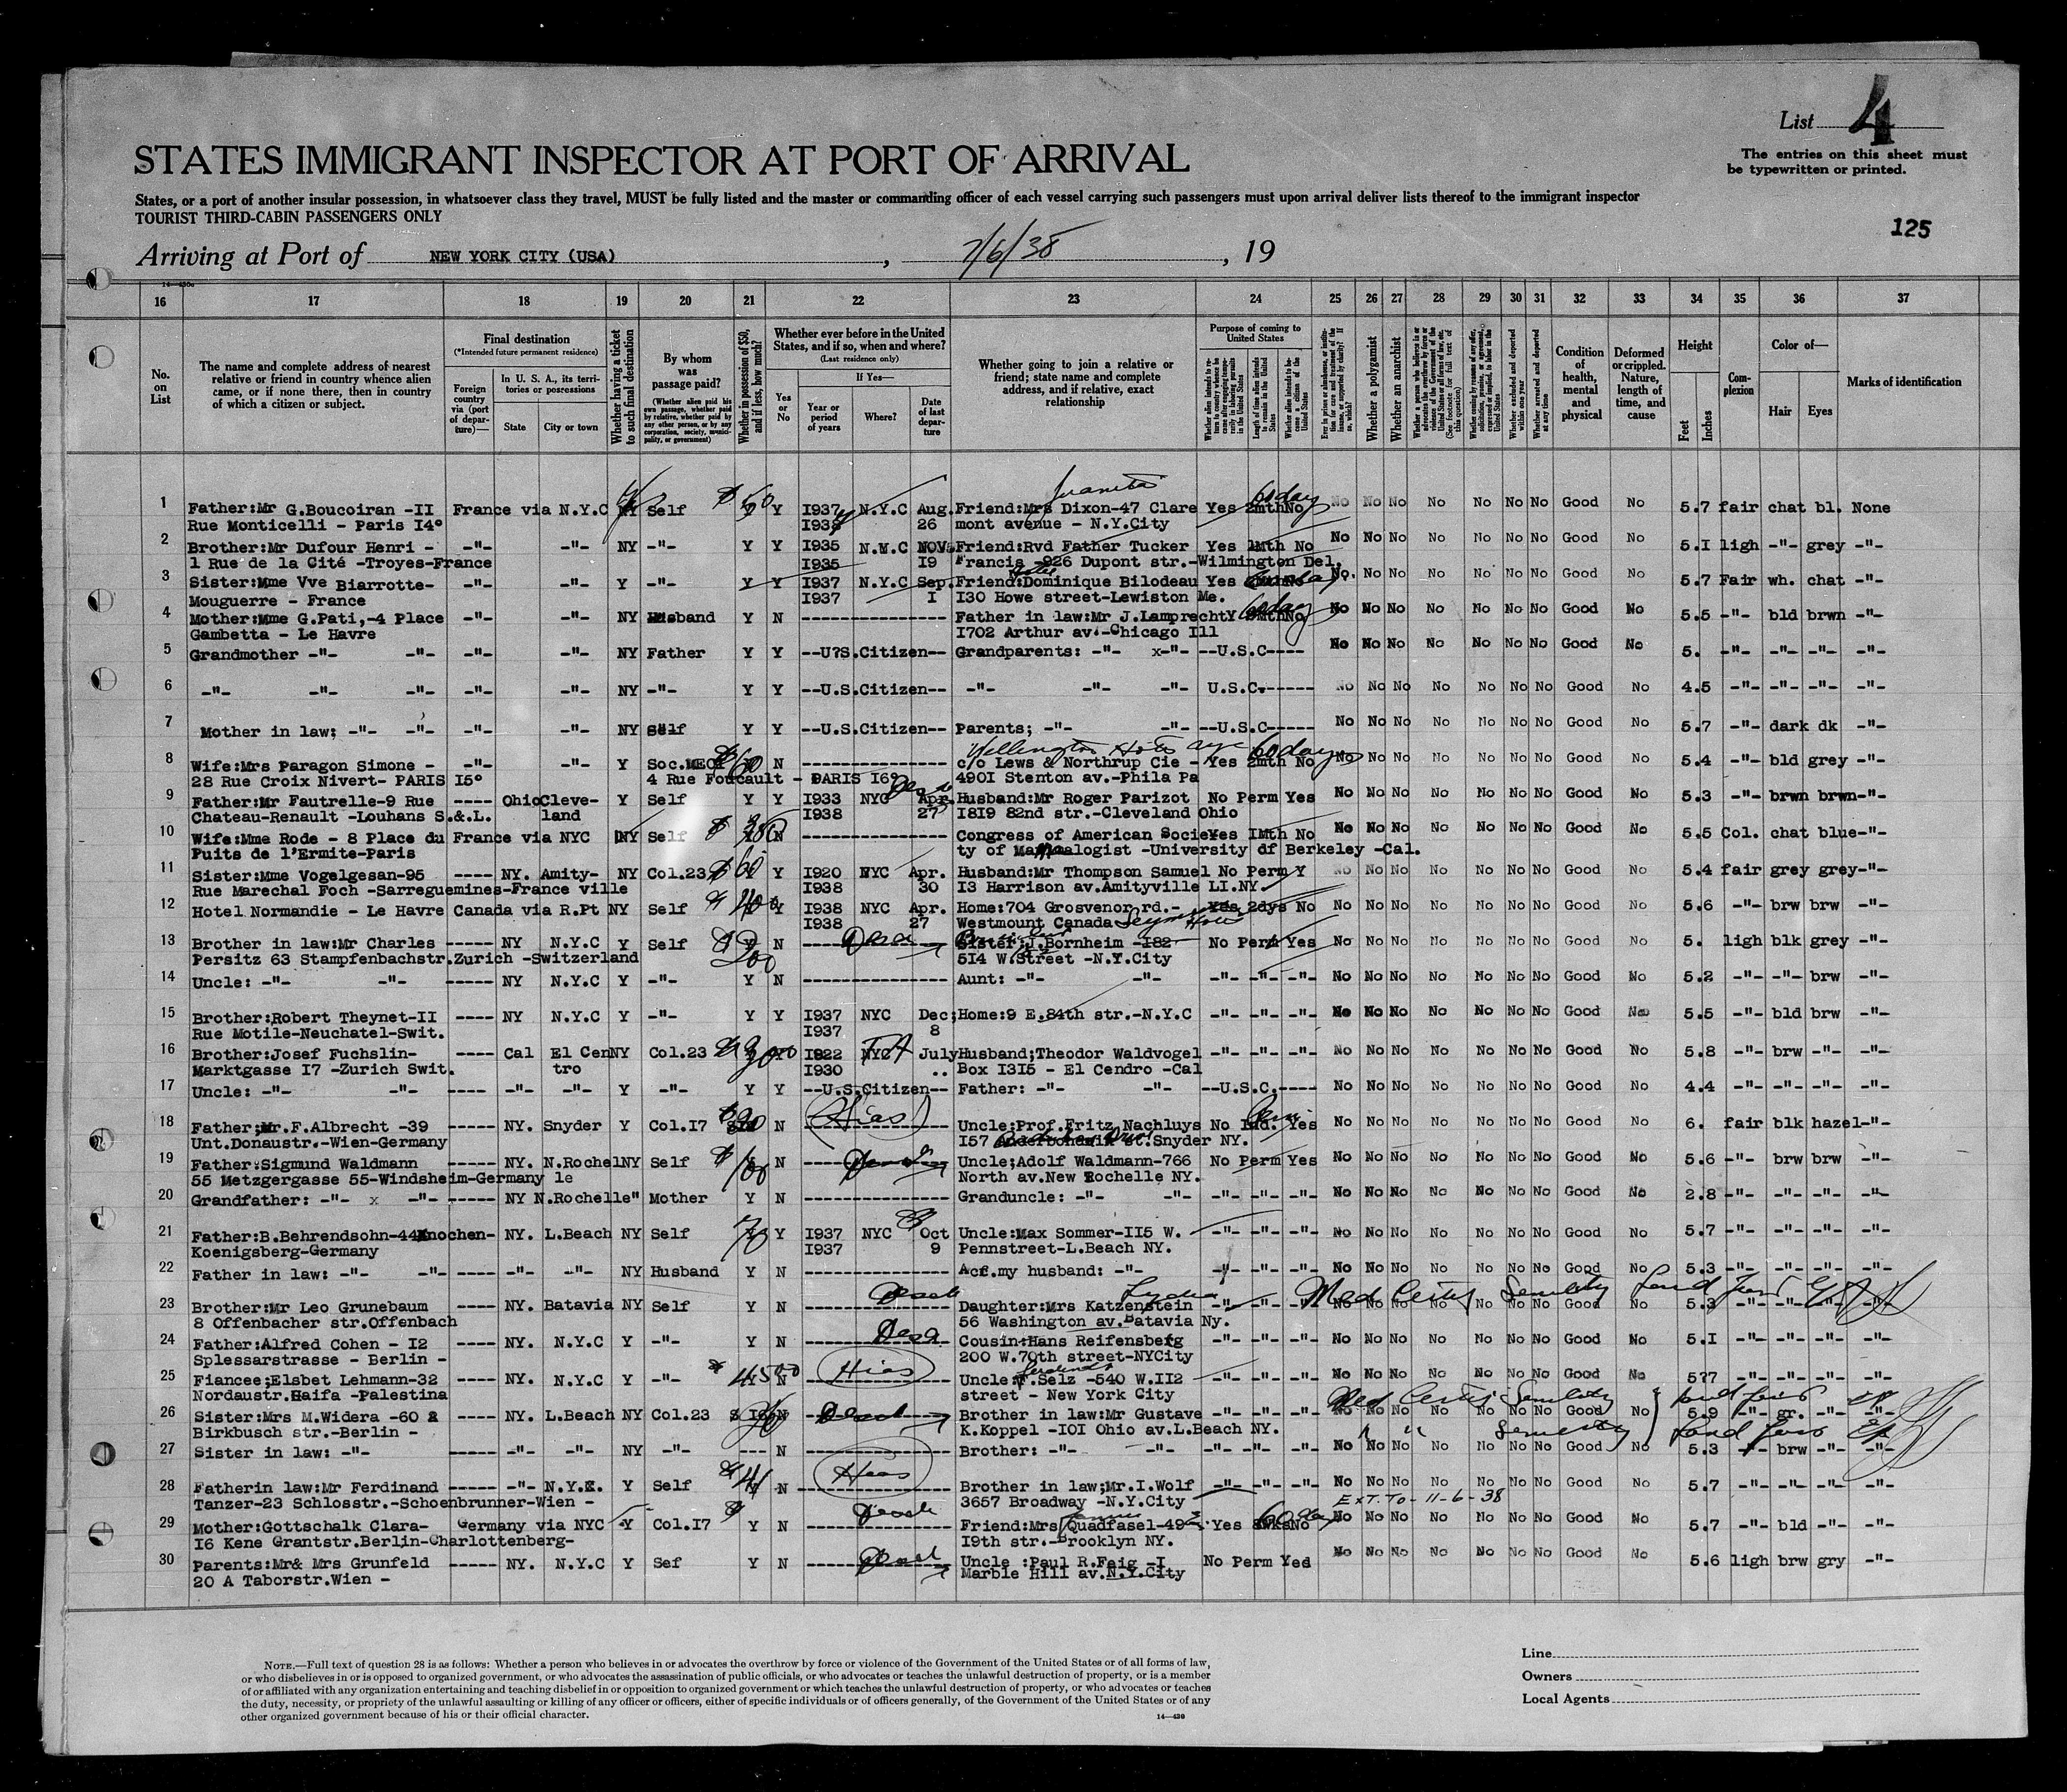 List 4
The entries on this sheet must
be typewritten or printed.
STATES IMMIGRANT INSPECTOR AT PORT OF ARRIVAL
States, or a port of another insular possession, in whatsoever class they travel, MUST be fully listed and the master or commanding officer of each vessel carrying such passengers must upon arrival deliver lists thereof to the immigrant inspector
TOURIST THIRD-CABIN PASSENGERS ONLY
125
Arriving at Port of NEW YORK CITY (USA), 7/6/38, 19
16 17 18 19 20 21 22 23 24 25 26 27 28 29 30 31 32 33 34 35 36 37
No. on List
The name and complete address of nearest
relative or friend in country whence alien
came, or if none there, then in country
of which a citizen or subject.
Final destination
(*Intended future permanent residence)
Foreign country via (port of departure)—
In U. S. A., its territories or possessions
State
City or town
Whether having a ticket to such final destination
By whom was passage paid?
(Whether alien paid his own passage, whether paid by relative, whether paid by any other person, or by any corporation, society, municipality, or government)
Whether in possession of $50, and if less, how much?
Whether ever before in the United States, and if so, when and where?
(Last residence only)
Yes or No
If Yes—
Year or period of years
Where?
Date of last departure
Whether going to join a relative or
friend; state name and complete
address, and if relative, exact
relationship
Purpose of coming to United States
Length of time alien intends to remain in the United States
Whether alien intends to become a citizen of the United States
Whether a polygamist
Whether an anarchist
Whether excluded and deported within one year
Whether arrested and deported at any time
Condition of health, mental and physical
Deformed or crippled. Nature, length of time, and cause
Height
Feet
Inches
Complexion
Color of—
Hair
Eyes
Marks of identification
Juanita 60 day
1 Father:Mr G.Boucoiran -II France via N.Y.C NY Self $50 Y Y I937 N.Y.C Aug. Friend:Mrs Dixon-47 Clare Yes 2mth No No No No No No No No Good No 5.7 fair chat bl. None
Rue Monticelli - Paris I4° I938 26 mont avenue - N.Y.City
2 Brother:Mr Dufour Henri - -"- -"- NY -"- Y Y I935 N.Y.C NOV. Friend:Rvd Father Tucker Yes 1Mth No No No No No No No No Good No 5.I ligh -"- grey -"-
1 Rue de la Cité -Troyes-France I935 I9 Francis -926 Dupont str.-Wilmington Del.
3 Sister:Mme Vve Biarrotte- -"- -"- Y -"- Y Y I937 N.Y.C Sep. Friend:Dominique Bilodeau Yes No. No No No No No No Good No 5.7 Fair wh. chat -"-
Mouguerre - France I937 I I30 Howe street-Lewiston Me.
4 Mother:Mme G.Pati,-4 Place -"- -"- NY Husband Y N --------------- Father in law:Mr J.Lamprecht Y 60 day No No No No No No No No Good No 5.5 -"- bld brwn -"-
Gambetta - Le Havre I702 Arthur av.-Chicago Ill
5 Grandmother -"- -"- -"- -"- NY Father Y Y --U?S.Citizen-- Grandparents: -"- x-"- --U.S.C---- No No No No No No No Good No 5. -"- -"- -"- -"-
6 -"- -"- -"- -"- -"- NY -"- Y Y --U.S.Citizen-- -"- -"- -"- U.S.C.------ No No No No No No No Good No 4.5 -"- -"- -"- -"-
7 Mother in law; -"- -"- -"- -"- NY Self Y Y --U.S.Citizen-- Parents; -"- -"- --U.S.C----- No No No No No No No Good No 5.7 -"- dark dk -"-
Wellington Hotel 60 days
8 Wife:Mrs Paragon Simone - -"- -"- Y Soc.MECI $60 N --------------- c/o Lews & Northrup Cie - Yes 2mth No No No No No No No No Good No 5.4 -"- bld grey -"-
28 Rue Croix Nivert- PARIS I5° 4 Rue Foucault - PARIS I6° 490I Stenton av.-Phila Pa
9 Father:Mr Fautrelle-9 Rue ---- Ohio Cleve- Y Self Y Y I933 NYC Apr. Husband:Mr Roger Parizot No Perm Yes No No No No No No No Good No 5.3 -"- brwn brwn-"-
Chateau-Renault -Louhans S.&.L. land I938 27 I8I9 82nd str.-Cleveland Ohio
10 Wife:Mme Rode - 8 Place du France via NYC NY Self N --------------- Congress of American Socie Yes IMth No No No No No No No No Good No 5.5 Col. chat blue-"-
Puits de l'Ermite-Paris ty of -University of Berkeley -Cal.
11 Sister:Mme Vogelgesan-95 ---- NY. Amity- NY Col.23 $60 Y I920 NYC Apr. Husband:Mr Thompson Samuel No Perm Y No No No No No No No Good No 5.4 fair grey grey-"-
Rue Marechal Foch -Sarreguemines-France ville I938 30 I3 Harrison av.Amityville LI.NY.
12 Hotel Normandie - Le Havre Canada via R.Pt NY Self $400 Y I938 NYC Apr. Home:704 Grosvenor rd.- Yes 2dys No No No No No No No No Good No 5.6 -"- brw brw -"-
I938 27 Westmount Canada Seymour Hotel
13 Brother in law:Mr Charles ----- NY N.Y.C Y Self Y N Sister:J.Bornheim -I82 No Perm Yes No No No No No No No Good No 5. ligh blk grey -"-
Persitz 63 Stampfenbachstr.Zurich -Switzerland 5I4 W.Street -N.Y.City
14 Uncle: -"- -"- ----- NY N.Y.C Y -"- Y N --------------- Aunt: -"- -"- -"- -"- -"- No No No No No No No Good No 5.2 -"- -"- brw -"-
15 Brother:Robert Theynet-II ---- NY N.Y.C Y -"- Y Y I937 NYC Dec; Home:9 E.84th str.-N.Y.C -"- -"- -"- No No No No No No No Good No 5.5 -"- bld brw -"-
Rue Motile-Neuchatel-Swit. I937 8
16 Brother:Josef Fuchslin- ---- Cal El Cen NY Col.23 I922 NYC July Husband;Theodor Waldvogel -"- -"- -"- No No No No No No No Good No 5.8 -"- brw -"- -"-
Marktgasse I7 -Zurich Swit. tro I930 .. Box I3I5 - El Cendro -Cal
17 Uncle: -"- -"- ---- -"- -"- Y -"- Y Y --U.S.Citizen-- Father: -"- -"- --U.S.C.---- No No No No No No No Good No 4.4 -"- -"- -"- -"-
18 Father;Mr.F.Albrecht -39 ---- NY. Snyder Y Col.I7 N (Hias) Uncle;Prof.Fritz Nachluys No Perm Yes No No No No No No No Good No 6. fair blk hazel-"-
Unt.Donaustr.-Wien-Germany I57 Snyder NY.
19 Father:Sigmund Waldmann ----- NY. N.Rochel NY Self $100 N Uncle;Adolf Waldmann-766 No Perm Yes No No No No No No No Good No 5.6 -"- brw brw -"-
55 Metzgergasse 55-Windsheim-Germany le North av.New Rochelle NY.
20 Grandfather: -"- x -"- ----- NY N.Rochelle" Mother Y N --------------- Granduncle: -"- -"- -"- -"- -"- No No No No No No No Good No 2.8 -"- -"- -"- -"-
21 Father:B.Behrendsohn-44Knochen- NY. L.Beach NY Self 70 Y I937 NYC Oct Uncle:Max Sommer-II5 W. -"- -"- -"- No No No No No No No Good No 5.7 -"- -"- -"- -"-
Koenigsberg-Germany I937 9 Pennstreet-L.Beach NY.
22 Father in law: -"- -"- ---- -"- -"- NY Husband Y N --------------- Acf.my husband: -"- -"- -"- -"- No No No No No No No Good No 5.3 -"- -"- -"- -"-
Lydia Med Certif Senility
23 Brother:Mr Leo Grunebaum ---- NY. Batavia NY Self Y N Daughter:Mrs Katzenstein -"- -"- -"- No No No No No No No Good No 5.3 -"- -"- -"- -"-
8 Offenbacher str.Offenbach 56 Washington av.Batavia Ny.
24 Father:Alfred Cohen - I2 ---- NY. N.Y.C Y -"- Y N Cousin-Hans Reifensberg -"- -"- -"- No No No No No No No Good No 5.I -"- -"- -"- -"-
Splessarstrasse - Berlin - 200 W.70th street-NYCity
25 Fiancee;Elsbet Lehmann-32 ---- NY. N.Y.C Y -"- $4500 N Hias Uncle F.Selz -540 W.II2 -"- -"- -"- No No No No No No No Good No 5?7 -"- -"- -"- -"-
Nordaustr.Haifa -Palestina street - New York City
Med Certif Senility
26 Sister:Mrs M.Widera -60 & ---- NY. L.Beach NY Col.23 N Brother in law:Mr Gustave -"- -"- -"- No No No No No No No Good No 5.9 -"- gr. -"- -"-
Birkbusch str.-Berlin - K.Koppel -I0I Ohio av.L.Beach NY.
Senility
27 Sister in law: -"- ----- -"- -"- NY -"- --- N --------------- Brother: -"- -"- -"- -"- -"- No No No No No No No Good No 5.3 -"- brw -"- -"-
28 Fatherin law:Mr Ferdinand ----- -"- N.Y.E. Y Self N Hias Brother in law;Mr.I.Wolf -"- -"- -"- No No No No No No No Good No 5.7 -"- -"- -"- -"-
Tanzer-23 Schlosstr.-Schoenbrunner-Wien - 3657 Broadway -N.Y.City
EXT. TO - 11-6-38
29 Mother:Gottschalk Clara- Germany via NYC -Y Col.I7 Y N Friend:Mrs Quadfasel-49 Yes 60 day No No No No No No No No Good No 5.7 -"- bld -"- -"-
I6 Kene Grantstr.Berlin-Charlottenberg- I9th str.-Brooklyn NY.
30 Parents:Mr& Mrs Grunfeld ----- NY. N.Y.C Y Sef Y N Uncle :Paul R.Feig -I No Perm Yes No No No No No No No Good No 5.6 ligh brw gry -"-
20 A Taborstr.Wien - Marble Hill av.N.Y.City
NOTE.—Full text of question 28 is as follows: Whether a person who believes in or advocates the overthrow by force or violence of the Government of the United States or of all forms of law,
or who disbelieves in or is opposed to organized government, or who advocates the assassination of public officials, or who advocates or teaches the unlawful destruction of property, or is a member
of or affiliated with any organization entertaining and teaching disbelief in or opposition to organized government or which teaches the unlawful destruction of property, or who advocates or teaches
the duty, necessity, or propriety of the unlawful assaulting or killing of any officer or officers, either of specific individuals or of officers generally, of the Government of the United States or of any
other organized government because of his or their official character.
14—430
Line
Owners
Local Agents